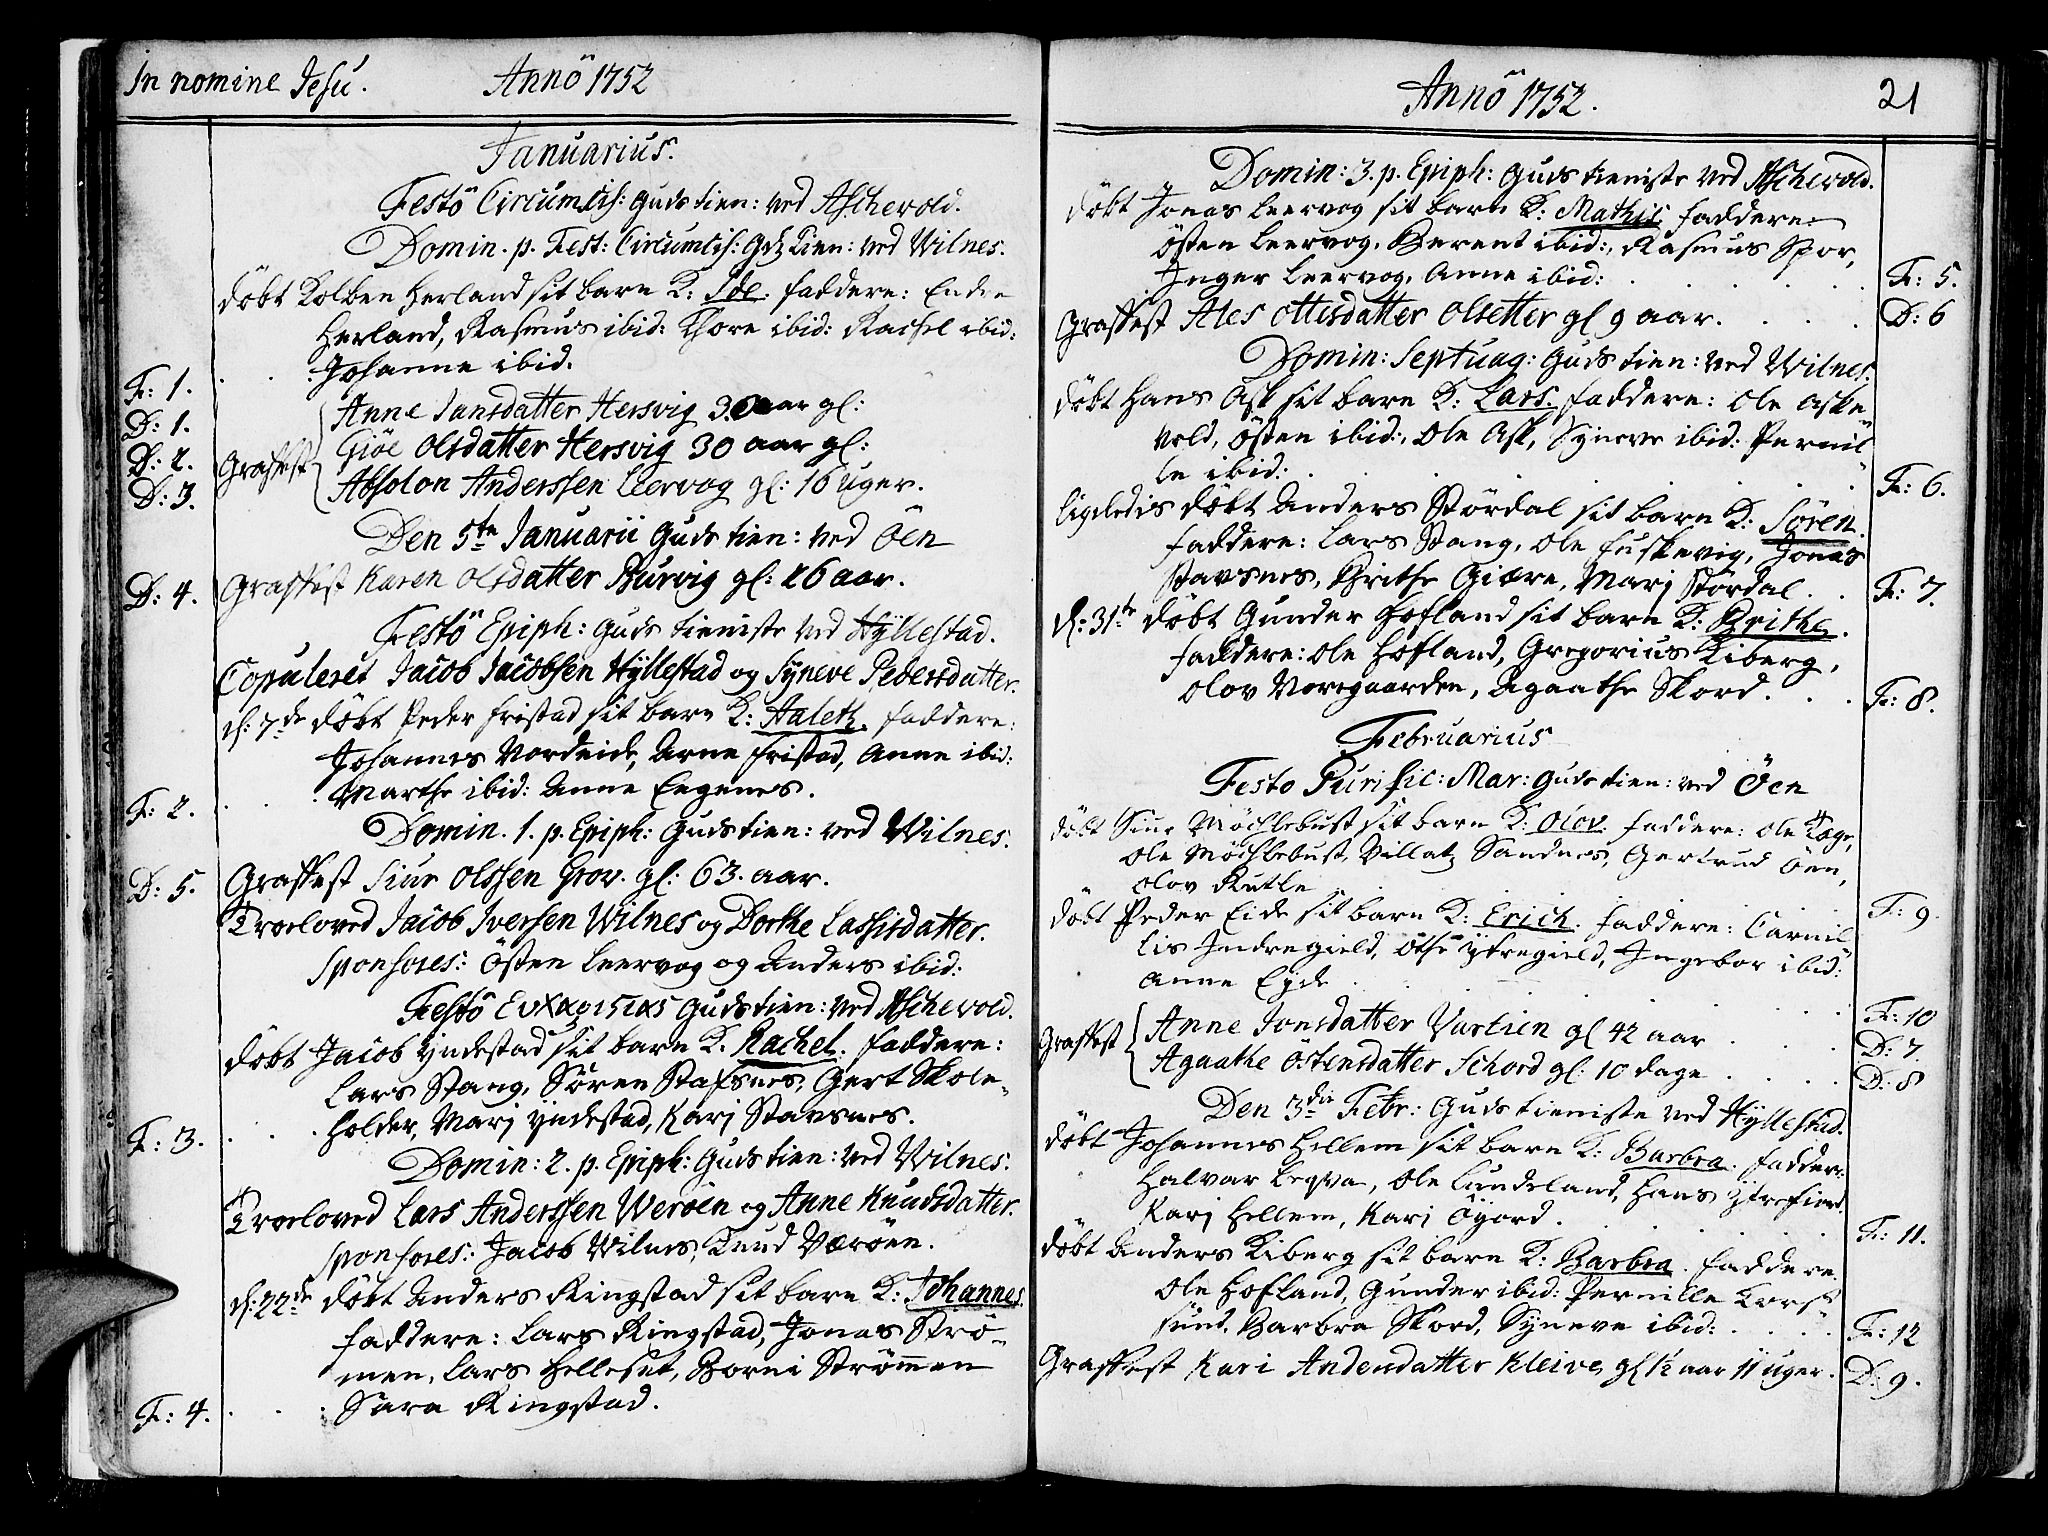 In nomine Jesu. Annö 1752
Januarius.
Festö Circumcis: Guds tien: ved Aschevold.
Domin. p. Fest: Circumcis: Gdz tien: ved Wilnes.
döbt Kolben Herland sit barn K: Ide. faddere: Endre
Herland, Rasmus ibid: Thore ibid: Rachel ibid:
F: 1. Johanne ibid.
D: 1. Anne Jansdatter Hersvig 30 aar gl:
D: 2. Graffest Giöe Olsdatter Hersvig 30 aar gl:
D: 3. Absolon Anderssen Leervog gl: 16 uger.
Den 5te Januarii Guds tien: ved Öen
D: 4. Graffest Karen Olsdatter Burvig gl: 26 aar.
Festö Epiph: Guds tieniste ved Hyllestad.
Copuleret Jacob Jacobsen Hyllestad og Syneve Pedersdatter.
d: 7de döbt Peder Fristad sit barn K: Aaleth. faddere:
Johannes Nordeide, Arne Fristad, Anne ibid:
F: 2. Marthe ibid: Anne Eegenes.
Domin. 1. p. Epiph: Guds tien: ved Wilnes.
D: 5. Graffest Siur Olssen Grov. gl: 63. aar.
Troeloved Jacob Iversen Wilnes og Dorthe Lassisdatter.
Sponsores: Östen Leervog og Anders ibid:
Festö Ευχαριςιας Guds tien: ved Aschevold.
döbt Jacob Yndestad sit barn K. Rachel. faddere:
Lars Stang, Sören Stafsnes, Gert Skole-
F: 3. holder, Marj Yndestad, Karj Stavsnes.
Domin: 2. p. Epiph: Guds tien: ved Wilnes.
Troeloved Lars Anderssen Weröen og Anne Knudsdatter.
Sponsores: Jacob Wilnes, Knud Væröen.
d: 22de döbt Anders Ringstad sit barn K: Johannes.
faddere: Lars Ringstad, Jonas Strö-
men, Lars Helleset, Borni Strömmen
F: 4. Sara Ringstad.
Annö 1752. 21
Domin: 3. p. Epiph: Guds tieniste ved Aschevold.
döbt Jonas Leervog sit barn K: Mathis faddere:
Östen Leervog, Berent ibid:, Rasmus Spor,
Inger Leervog, Anne ibid: F: 5.
Graffest Ales Ottisdatter Olsetter gl 9 aar. D: 6
Domin: Septuag: Guds tien: ved Wilnes.
döbt Hans Ask sit barn K: Lars. faddere: Ole Aske
vold, Östen ibid:, Ole Ask, Syneve ibid: Pernil
le ibid: F: 6.
Ligeledis döbt Anders Stördal sit barn K: Sören.
faddere: Lars Stang, Ole Fuskevig, Jonas
Stavsnes, Brithe Giære, Marj Stördal. F: 7.
d: 31te döbt Gunder Hofland sit barn K: Brithe.
faddere: Ole Hofland, Gregorius Kiberg,
Olov Noregaarden, Agaathe Skord. F: 8.
Februarius
Festo Purific: Mar: Guds tien: ved Öen
döbt Siur Möchlebust sit barn K: Olov. faddere: Ole Tage,
Ole Möchlebust, Villatz Sandnes, Gertrud Öen,
Olov Rutle F: 9.
döbt Peder Eide sit barn K: Erich. faddere: Carnil
lis Indregield, Othe Ytregield, Ingebor ibid:
Anne Eyde F: 10
Graffest Anne Jonsdatter Vartien gl 42 aar D: 7.
Agaathe Östensdatter Schord gl: 10 dage D: 8
Den 3die Febr: Guds tieniste ved Hyllestad.
döbt Johannes Hellem sit barn K: Barbra. fadder:
Halvar Leqva, Ole Lundeland, Hans Ytrefiord.
Karj Hellem, Kari Öyord. F: 11.
döbt Anders Kiberg sit barn K: Barbra. faddere
Ole Hofland, Gunder ibid: Pernille Lors
sund, Barbra Skord, Syneve ibid: F: 12
Graffest Kari Andersdatter Kleive gl ½ aar 11 uger. D: 9.